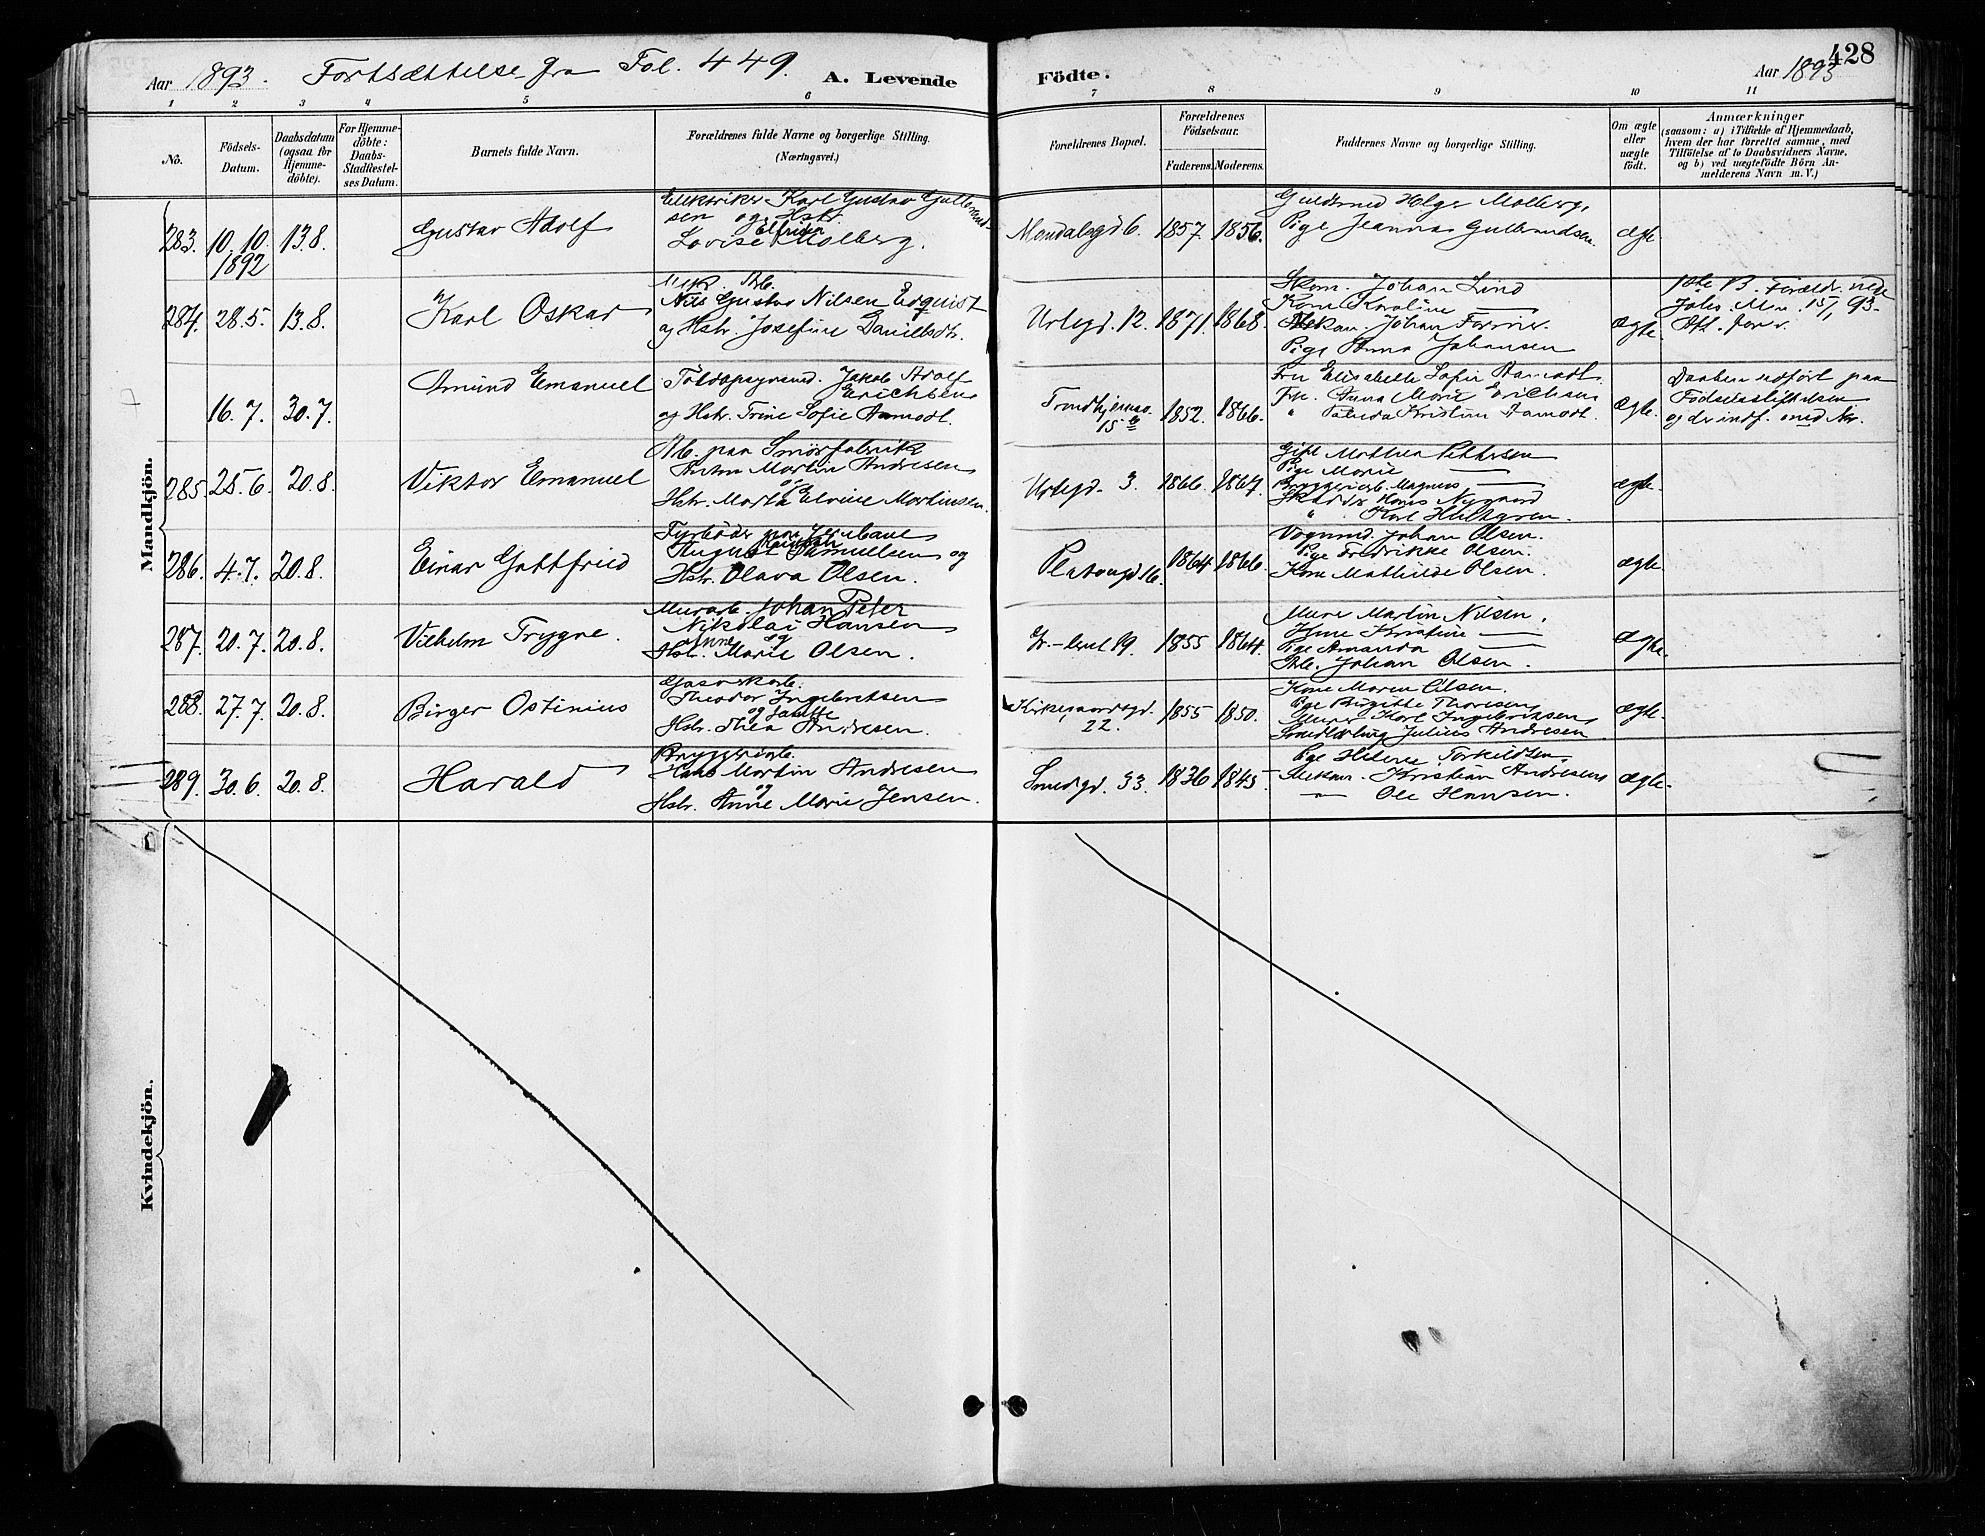 Aar 1893. Fortsættelse fra Fol. 449. A. Levende Födte. Aar 1893 428
1 2 3 4 5 6 7 8 9 10 11
No.
Födsels-Datum.
Daabsdatum (ogsaa for Hjemme-döbte).
For Hjemme-döbte: Daabs-Stadfæstel-ses Datum.
Barnets fulde Navn.
Forældrenes fulde Navne og borgerlige Stilling.
(Næringsvei.)
Forældrenes Bopæl.
Forældrenes Födselsaar.
Faderens. Moderens.
Faddernes Navne og borgerlige Stilling.
Om ægte eller uægte födt.
Anmærkninger
(saasom: a) i Tilfælde af Hjemmedaab,
hvem der har forrettet samme, med
Tilföielse af to Daabsvidners Navne,
og b) ved uægtefödte Börn An-
melderens Navn m. V.)
Mandkjön.
283. 10.10. 1892 13.8. Gustav Adolf
Elektriker Karl Gustav Gulbrand-
sen og Hstr.
Lovise Elfrida Molberg.
6. 1857. 1856.
Guldsmed Helge Molberg,
Pige Jeanna Gulbrandsen
ægte
284. 28.5. 13.8. Karl Oskar
Nils Gustav Nilsen Edquist
og Hstr. Josefine Danielsdtr.
Urtegd. 12. 1871. 1868.
Skom. Johan Lind
Kone Karoline —
Johan
Pige Anna Johansen
ægte.
93.
16.7. 30.7. Amund Emanuel
Toldopsynsmd. Jakob Adolf
Erichsen
og Hstr. Trine Sofie Aamodt.
15 b 1852. 1866.
Fru Elisabeth Sofie Aamodt
Frk. Anna Marie Erichsen
" Kristine Aamodt.
ægte.
Daaben udført paa
Fødselsstiftelsen
og der indf. med Nr.
285. 25.6. 20.8. Viktor Emanuel
Arb. paa Smørfabrik
Anton Martin Andresen
og
Hstr. Marta Elvine Martinssen.
Urtegd. 3. 1866. 1867.
Gift Mathea Pettersen
Pige Marie —
Bryggeriarb. Magnus —
Skrædder Hans Nygaard
" Karl Hultgren.
ægte.
286. 4.7. 20.8. Einar Gottfried
Fyrbøder paa Jernbane
August Samuelsen og
Hstr. Olava Olsen.
Platousgd 16. 1864 1866.
Vognmd. Johan Olsen.
Pige Fredrikke Olsen.
Kone Mathilde Olsen.
ægte.
287. 20.7. 20.8. Vilhelm Trygve.
Murarb. Johan Peter
Nikolai Hansen
og
Hstr. Anne Marie Olsen.
19. 1855 1864.
Murer Martin Nilsen,
Kone Kristine —
Pige Amanda —
Arb. Johan Olsen.
ægte.
288. 27.7. 20.8. Birger Ostinius
Theodor Ingebretsen
og
Hstr. Thea Andresen.
Kirkegaardsgd. 22. 1855 1850.
Kone Maren Olsen.
Pige Birgitte Thoresen
Murer Karl Ingebriktsen
Smedlærling Julius Andresen
ægte.
289. 30.6. 20.8. Harald
Bryggeriarb.
Hans Martin Andresen
og
Hstr. Anne Marie Jensen.
Smedgd. 33. 1836 1845
Pige Helene Torkildsen.
Kristian Andresen
— Ole Hansen.
ægte.
Kvindekjön.